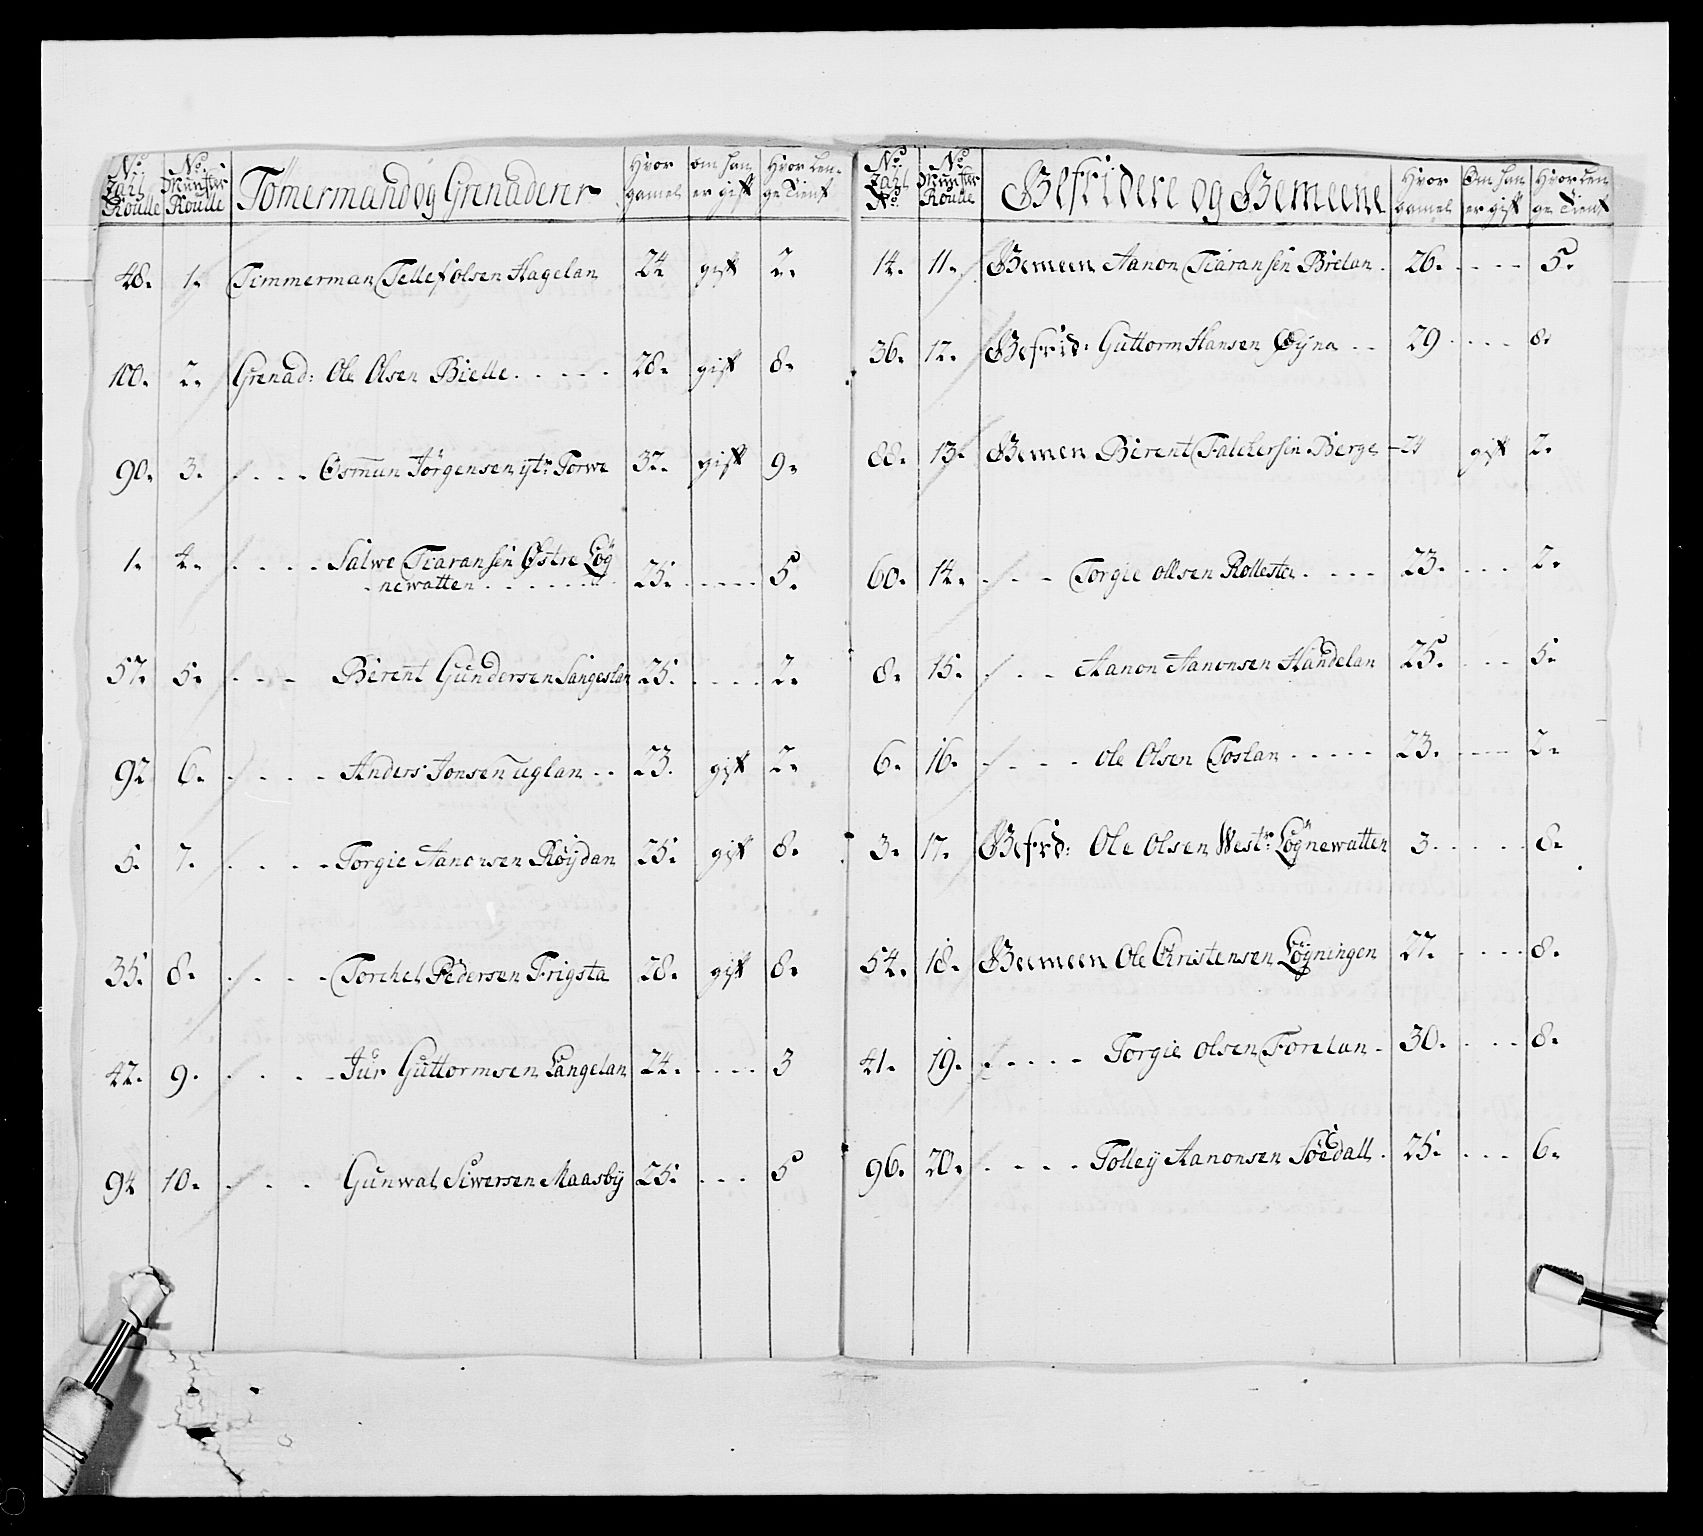 No Zahl Roulle | No Munster Roulle | Tömermand og Grenaderer | Hvor gamel | Om han er gift | Hvor len- ge Tient
48. 1. Timmerman Tellef olsen Hagelan 24 gift 2.
100. 2. Grenad: Ole Olsen Bielle . . . . . 28. gift 8.
90. 3. . . . . Osmun Jörgensen ytr Torwe 32. gift 9.
1. 4. . . . . Salwe Tiaransen Østre Løg
newatten . . . . . . . 25. . . . . . 5.
57. 5. . . . Birent Gundersen Langeslan 25. . . . . 2.
92 6. . . . . Anders Jonsen uglan . . 23. gift 2.
5. 7. . . . . Torgie Aanonsen Röijdan 25. gift 8.
35. 8. . . . . Torchel Pedersen Frigsta 28. gift 8.
42. 9. . . . . Jur Guttormsen Langelan 24. . . . . 3
94 10. . . . Gunwal Siwersen Maasbÿ 25. . . . 5
No Zahl No | No Munster Roulle | Gefridere og Gemeene | Hvor gamel | Om han er gift | Hvor len ge Tient
14. 11. Gemeen Aanon Tiaransen Brelan . 26. . . . . 5.
36. 12. Gefrid: Guttorm Hansen Øyna . . 29 . . . . 8.
88. 13. Gemen Birent Falckersen Berge - 24 gift 2.
60. 14. . . . Torgie ollsen Rollestei . . . . 23. . . . 2.
8. 15. . . . Aanon Aanonsen Handelan 25. . . . 5.
6. 16. . . . . Ole Olsen Toslan . . . . . 23. . . . . 2.
3. 17. Gefrd: Ole Olsen Westr Lögnewatten 3. . . . . 8.
54. 18. Gemeen Ole Christensen Lögningen 27. . . . . 8.
41. 19. . . . . Torgie Olsen Forelan . 30. . . . 8.
96. 20. . . . . Tolleÿ Aanonsen Söedall . 25. . . . 6.